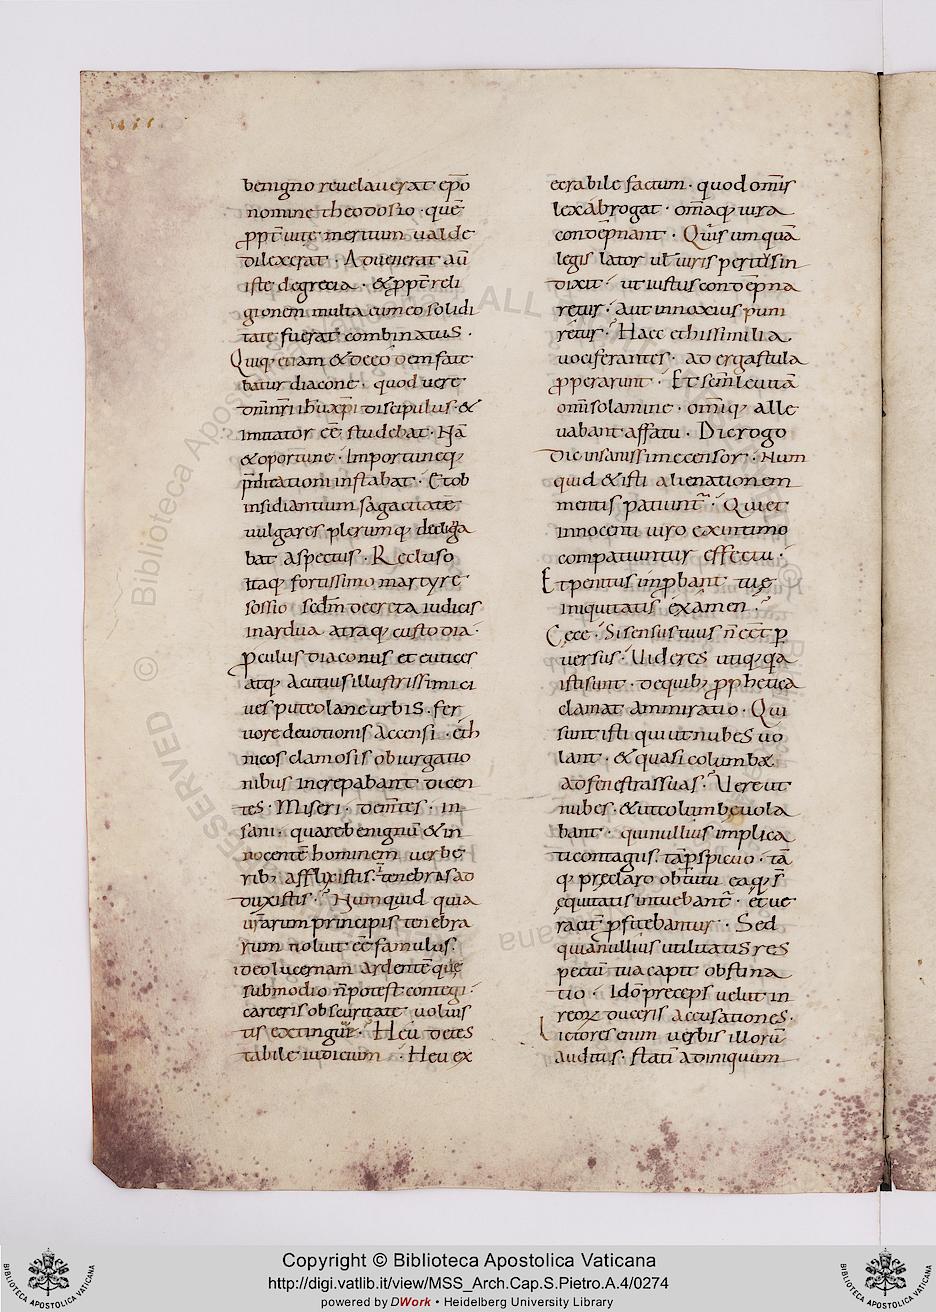 benigno reuelauerat ep̄o
nomine theodosio · quē
ꝓpt̄ uite meritum ualde
dilexerat · Aduenerat aū
iste degrecia · & ꝓpt̄ reli
gionem multa cum eo solidi
tate fuerat combinatus ·
Quiq; etiam & deco
batur diacone · quod uere
dn̄i nr̄i ih̄u xp̄i discipulus · &
imitator eē studebat · Nā
& oportune · Importuneq;
p̄dicationi instabat · Et ob
insidiantium sagacitatē
uulgares plerumq; dediga
bat aspectus · Recluso
itaq; fortissimo martyre
sossio scdm̄ decreta iudicis
in ardua atraq; custodia ·
ꝓculus diaconus et eutices
atq; Acutius illustrissimi ci
ues puteolane urbis · fer
uore deuotionis accensi · eth
nicos clamosis obiurgatio
nibus increpabant dicen
tes · Miseri · dem̄tes · in
sani · quare benignū & in
nocentē hominem uerbe
rib; afflixistis · tenebris ad
duxistis · Numquid quia
ur̄arum principis tenebra
rum noluit eē famulus ·
ideo lucernam ardentē quę
sub modio n̄ potest contegi ·
carceris obscuritate uoluis
tis extinguī · Heu detes
tabile iudicium · Heu ex
ecrabile factum · quod om̄is
lex abrogat · om̄iaq; iura
condēpnant · Quis umquā
legis lator ul̄ iuris peritus in
dixit · ut iustus condēpna
retur · aut innoxius puni
retur · Haec et his similia ·
uociferantes · ad ergastula
ꝓperarunt · Et leuitā
om̄i solamine · om̄iq; alle
uabant affatu · Dic rogo
dic insanissime censor · Num
quid & isti alienationem
mentis patiunt̄ · Qui et
innocenti uiro ex intimo
compatiuntur effectu ·
Et penitus imp̄bant tuę
iniquitatis examen ·
Ecce · Si sensus tuus n̄ eēt p̱
uersus · Uideres utiq; q̄a
isti sunt · de quib; ꝓphetica
clamat ammiratio · Qui
sunt isti qui ut nubes uo
lant · & quasi columbæ
ad fenestras suas · Uere ut
nubes · & ut columbę uola
bant · qui nullius implica
ti contagiis · tā p̱spicuo · tā
q; preclaro obtutu ea q; s̄
equitatis intuebant̄ · et ue
racit̄ ꝓfitebantur · Sed
quia nullius utilitatis res
pectum tua capit obstina
tio · Ideo preceps uelut in
reos duceris accusationes ·
Lictores enim uerbis illorū
auditis · statī ad iniquum
Copyright © Biblioteca Apostolica Vaticana
http://digi.vatlib.it/view/MSS_Arch.Cap.S.Pietro.A.4/0274
powered by DWork • Heidelberg University Library